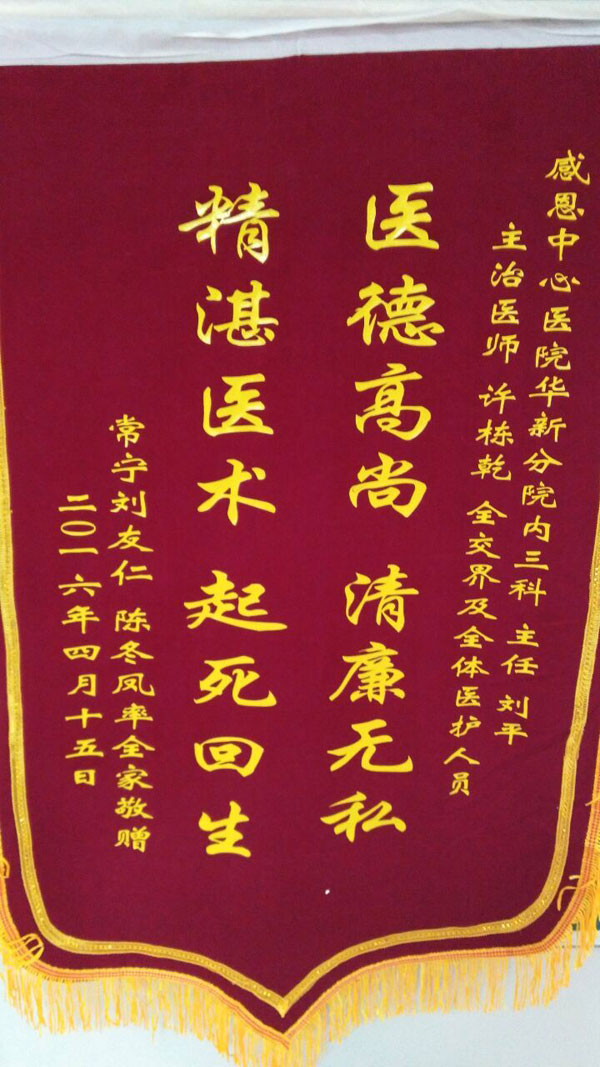 感恩中心医院华新分院内三科 主任 刘平
主治医师 许栋乾 全交界及全体医护人员
医德高尚 清廉无私
精湛医术 起死回生
常宁刘友仁 陈冬凤率全家敬赠
二〇一六年四月十五日